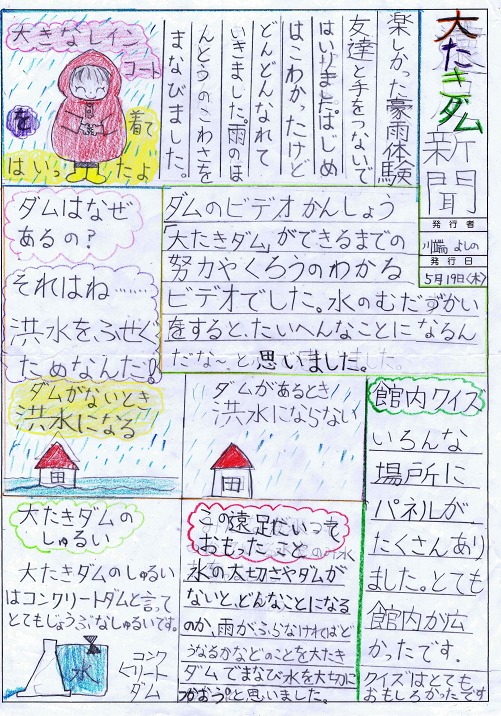 大たきダム新聞
発行者
川端 よしの
発行日
5月19日(木)
楽しかった豪雨体験
友達と手をつないで
はいりました。はじめ
はこわかったけど
どんどんなれて
いきました。雨のほ
んとうのこわさを
まなびました。
大きなレイン
コート
を
着て
はいったよ
ダムはなぜ
あるの?
それはね……
洪水を、ふせぐ
ためなんだ!!
ダムのビデオかんしょう
「大たきダム」ができるまでの
努力やくろうのわかる
ビデオでした。水のむだづかい
をすると、たいへんなことになるん
だな〜と、思いました。
ダムがないとき
洪水になる
ダムがあるとき
洪水にならない
館内クイズ
いろんな
場所に
パネルが、
たくさんあり
ました。とても
館内が広
かったです。
クイズはとても
おもしろかったです
大たきダムの
しゅるい
大たきダムのしゅるい
はコンクリートダムと言って
とてもじょうぶなしゅるいです。
水
コンク
リート
ダム
この遠足でいって
おもったこと
水の大切さやダムが
ないと、どんなことになる
のか、雨が、ふらなければど
うなるかなどのことを大たき
ダムでまなび水を大切に
つかおう!と思いました。